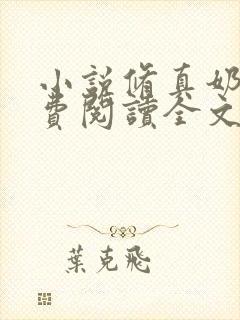 小說修真奶
費閱讀全文
葉克飛